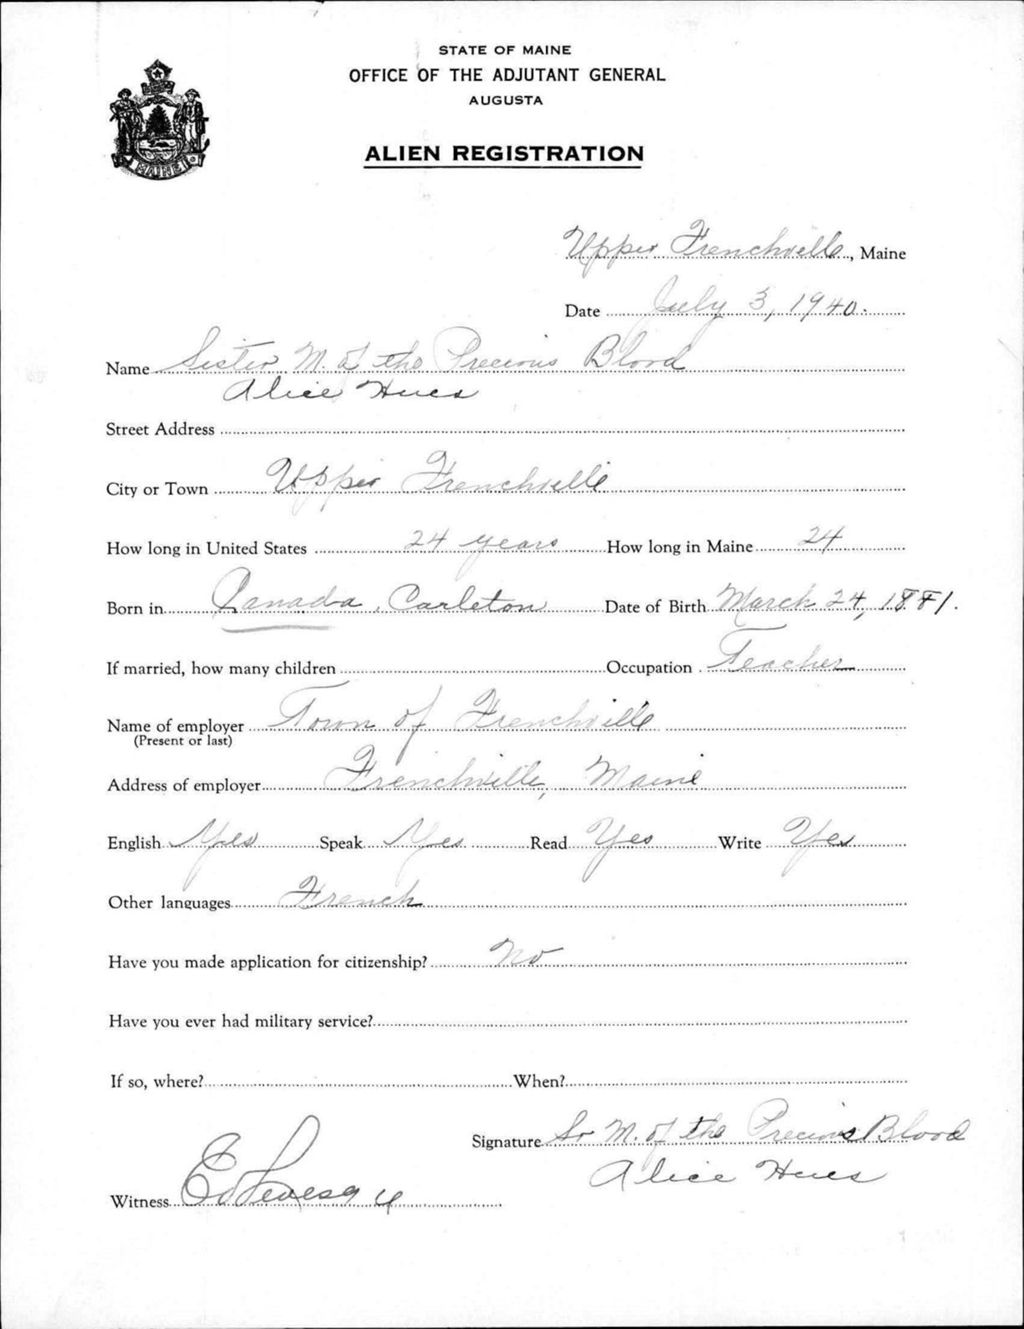 STATE OF MAINE
OFFICE OF THE ADJUTANT GENERAL
AUGUSTA
ALIEN REGISTRATION
MAINE
Upper Frenchville, Maine
Date July 3, 1940.
Name Sister M. of the Precious Blood
Alice Hues
Street Address
City or Town Upper Frenchville
How long in United States 24 years How long in Maine 24
Born in Canada, Carleton Date of Birth March 24, 1881.
If married, how many children Occupation Teacher
Name of employer Town of Frenchville
(Present or last)
Address of employer Frenchville, Maine
English Yes Speak Yes Read Yes Write Yes
Other languages French
Have you made application for citizenship? No
Have you ever had military service?
If so, where? When?
Signature Sr M. of the Precious Blood
Alice Hues
Witness Ed Levesque